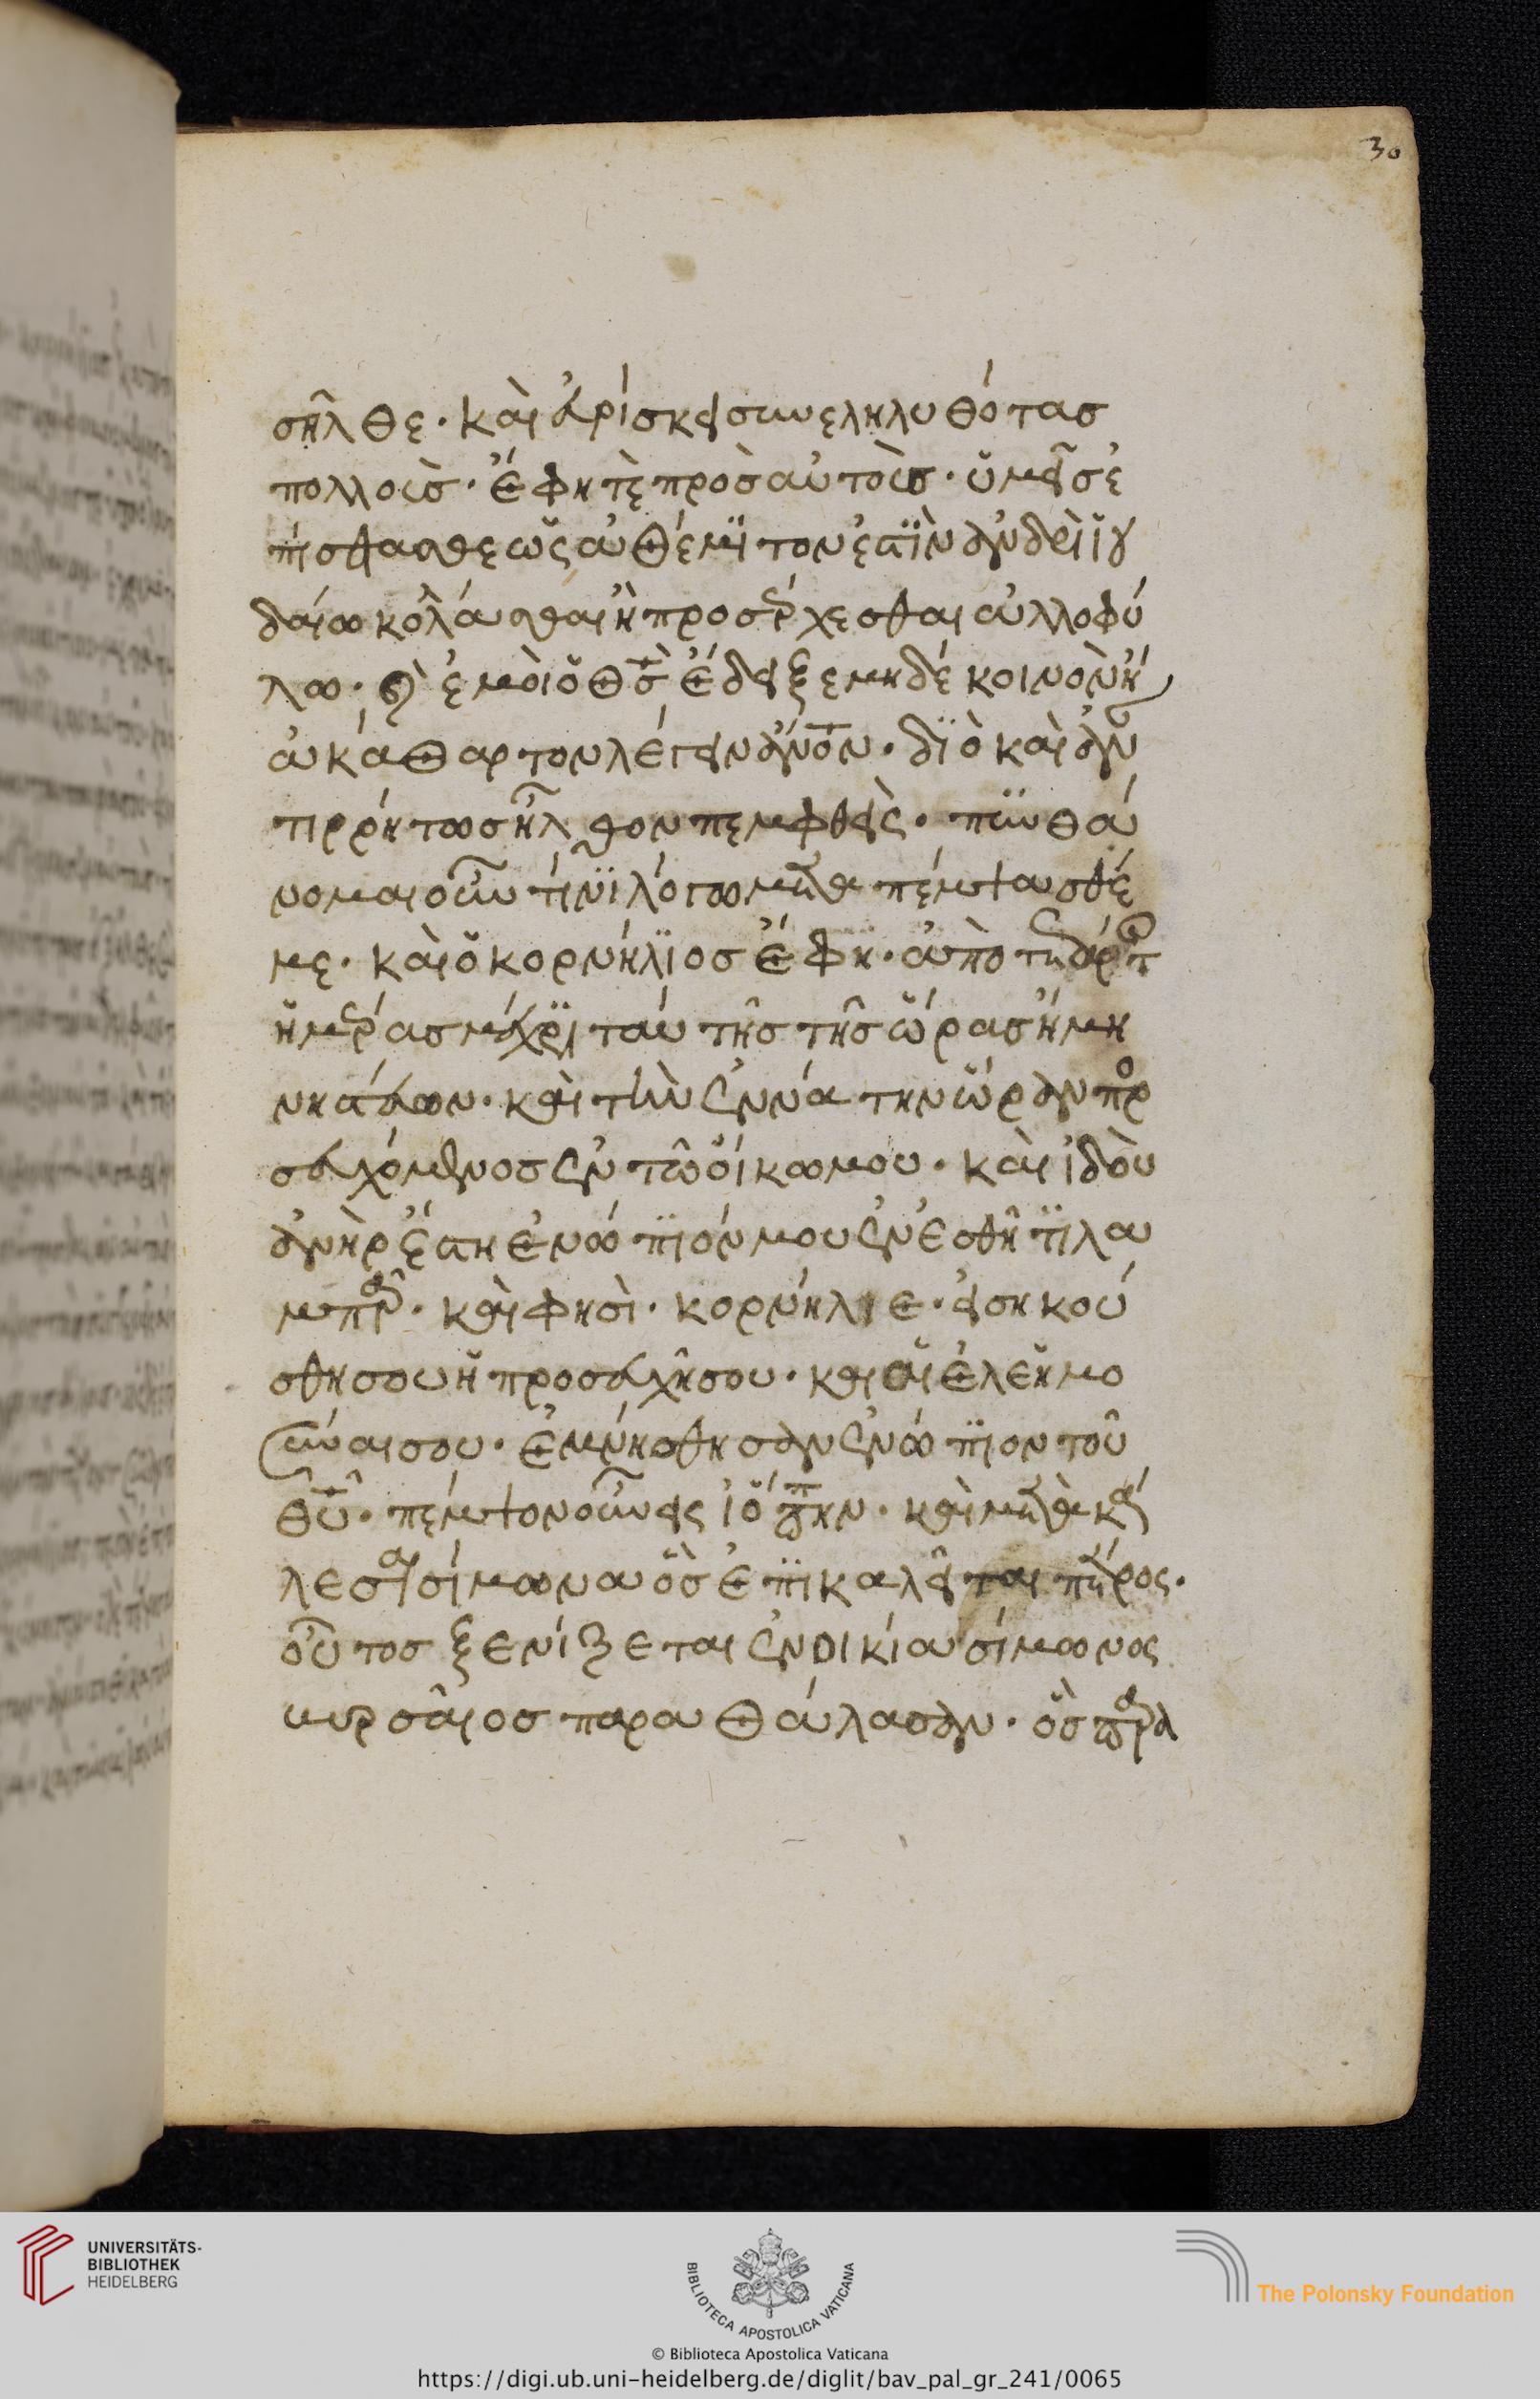 30
σῆλθε· καὶ εὑρίσκει συνεληλυθότας
πολλούς· ἔφη τὲ πρὸς αὐτούς· ὑμεῖς ἐ
πίστασθε ὡς ἀθέμιτον ἐστὶν ἀνδρὶ ἰου
δαίω κολάσθαι ἢ προσέρχεσθαι ἀλλοφύ
λω· καὶ ἐμοὶ ὁ θς ἔδειξε μηδέ κοινὸν ἢ
ἀκάθαρτον λέγειν ἀνον· διὸ καὶ ἀναν
τιρρήτως ἦλθον πεμφθείς· πυνθά
νομαι οὖν τίνι λόγω μετεπέμψασθέ
με· καὶ ὁ κορνήλιος ἔφη· ἀπὸ τετάρτ
ἡμέρας μέχρι ταύτης τῆς ὥρας ἤμη
νηστεύων· καὶ τὴν ἐννάτην ὥραν προ
σευχόμενος ἐν τῶ οἴκω μου· καὶ ἰδοὺ
ἀνὴρ ἔστη ἐνώπιόν μου ἐν ἐσθῆτι λα
μπρᾶ· καὶ φησὶ· κορνήλιε· εἰσηκού
σθη σου ἡ προσευχή σου· καὶ αἱ ἐλεημο
σύναι σου· ἐμνήσθησαν ἐνώπιον τοῦ
θυ· πέμψον οὖν εἰς ἰόππην· καὶ μετακά
λεσαι σίμωνα ὃς ἐπικαλεῖται πέτρος·
οὗτος ξενίζεται ἐν οἰκία σίμωνος
βυρσαίος παρα θάλασσαν· ὃς παρα
UNIVERSITÄTS-
BIBLIOTHEK
HEIDELBERG
BIBLIOTECA APOSTOLICA VATICANA
The Polonsky Foundation
© Biblioteca Apostolica Vaticana
https://digi.ub.uni-heidelberg.de/diglit/bav_pal_gr_241/0065